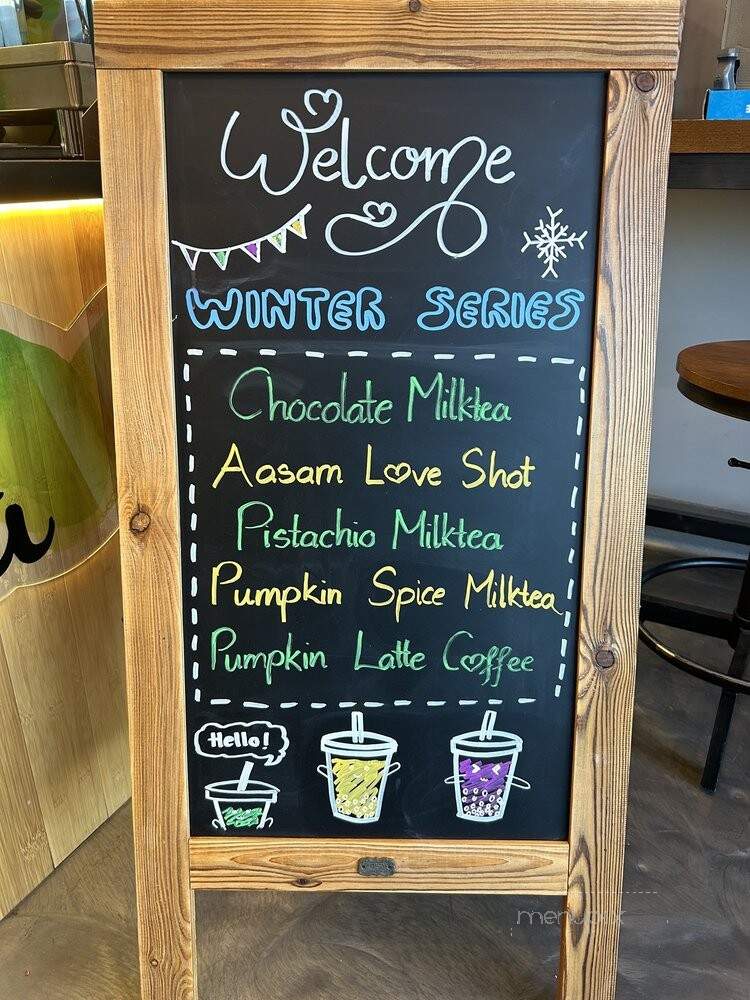 Welcome
WINTER SERIES
Chocolate Milktea
Aasam Love Shot
Pistachio Milktea
Pumpkin Spice Milktea
Pumpkin Latte Coffee
Hello!